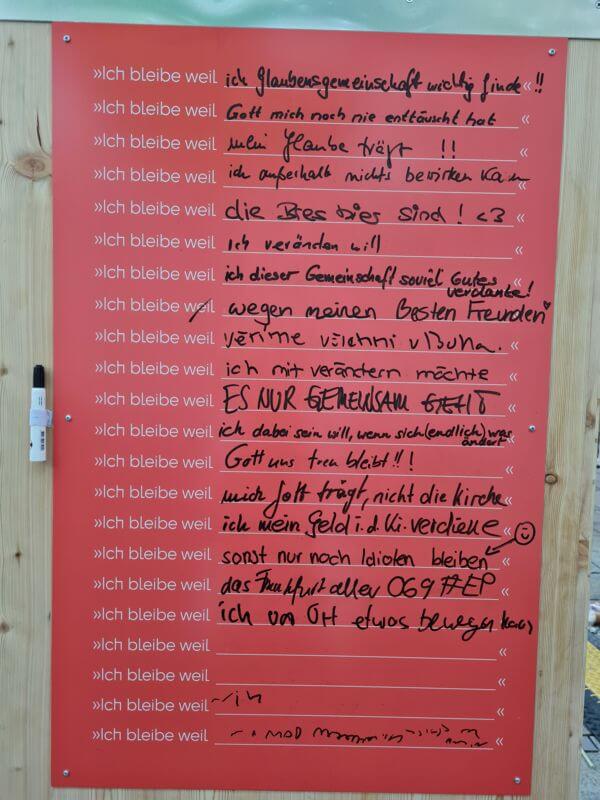 »Ich bleibe weil ich Glaubensgemeinschaft wichtig finde«!!
»Ich bleibe weil Gott mich noch nie enttäuscht hat «
»Ich bleibe weil mein Glaube trägt !! «
»Ich bleibe weil ich außerhalb nichts bewirken kann «
»Ich bleibe weil die sind ! <3 «
»Ich bleibe weil ich verändern will «
»Ich bleibe weil ich dieser Gemeinschaft soviel Gutes «
verdanke!
»Ich bleibe weil wegen meinen Besten Freunden
»Ich bleibe weil «
»Ich bleibe weil ich mit verändern möchte «
»Ich bleibe weil ES NUR GEMEINSAM GEHT «
»Ich bleibe weil ich dabei sein will, wenn sich (endlich) was «
ändert
»Ich bleibe weil Gott uns treu bleibt!!! «
»Ich bleibe weil mich Gott trägt, nicht die Kirche «
»Ich bleibe weil ich mein Geld i.d. Ki. verdiene «
»Ich bleibe weil sonst nur noch Idioten bleiben «
»Ich bleibe weil das Frankfurt aller 069 «
»Ich bleibe weil ich vor Ort etwas bewegen kann
»Ich bleibe weil «
»Ich bleibe weil «
»Ich bleibe weil «
»Ich bleibe weil «